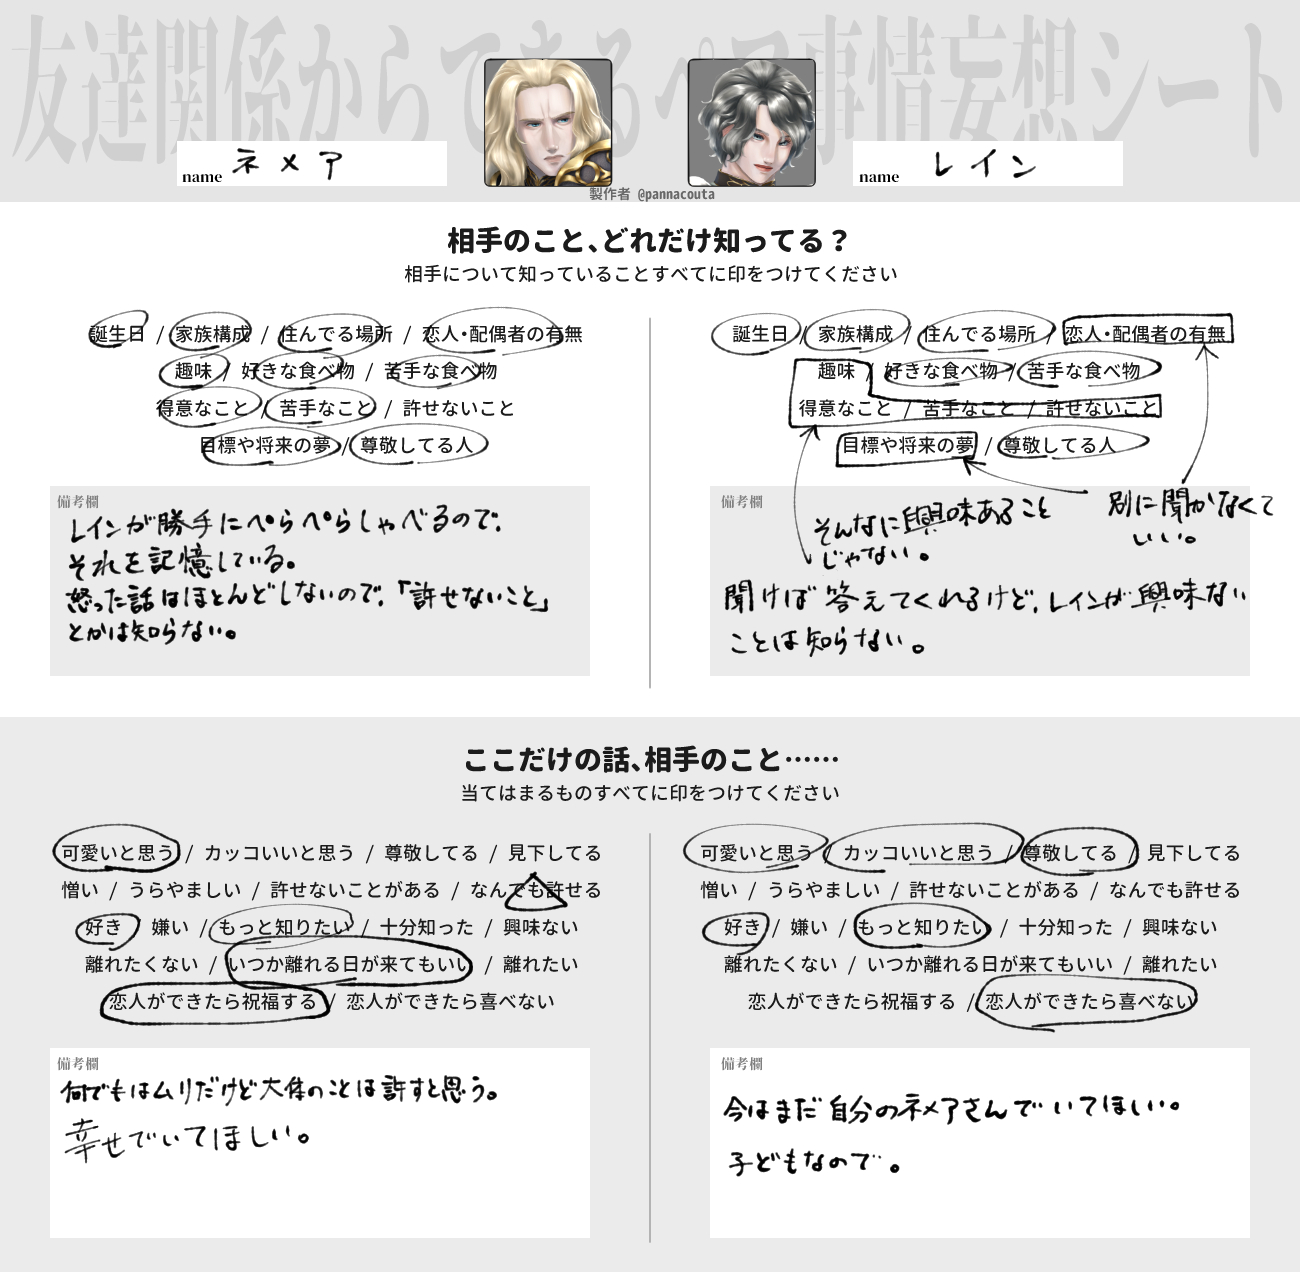 友達関係からできるペア事情妄想シート
name ネメア
name レイン
製作者 @pannacouta
相手のこと、どれだけ知ってる？
相手について知っていることすべてに印をつけてください
誕生日 / 家族構成 / 住んでる場所 / 恋人・配偶者の有無
趣味 / 好きな食べ物 / 苦手な食べ物
得意なこと / 苦手なこと / 許せないこと
目標や将来の夢 / 尊敬してる人
備考欄
レインが勝手にぺらぺらしゃべるので、
それを記憶している。
怒った話はほとんどしないので、「許せないこと」
とかは知らない。
誕生日 / 家族構成 / 住んでる場所 / 恋人・配偶者の有無
趣味 / 好きな食べ物 / 苦手な食べ物
得意なこと / 苦手なこと / 許せないこと
目標や将来の夢 / 尊敬してる人
備考欄
そんなに興味あること
じゃない。
別に聞かなくて
いい。
聞けば答えてくれるけど、レインが興味ない
ことは知らない。
ここだけの話、相手のこと……
当てはまるものすべてに印をつけてください
可愛いと思う / カッコいいと思う / 尊敬してる / 見下してる
憎い / うらやましい / 許せないことがある / なんでも許せる
好き / 嫌い / もっと知りたい / 十分知った / 興味ない
離れたくない / いつか離れる日が来てもいい / 離れたい
恋人ができたら祝福する / 恋人ができたら喜べない
備考欄
何でもはムリだけど大体のことは許すと思う。
幸せでいてほしい。
可愛いと思う / カッコいいと思う / 尊敬してる / 見下してる
憎い / うらやましい / 許せないことがある / なんでも許せる
好き / 嫌い / もっと知りたい / 十分知った / 興味ない
離れたくない / いつか離れる日が来てもいい / 離れたい
恋人ができたら祝福する / 恋人ができたら喜べない
備考欄
今はまだ自分のネメアさんでいてほしい。
子どもなので。